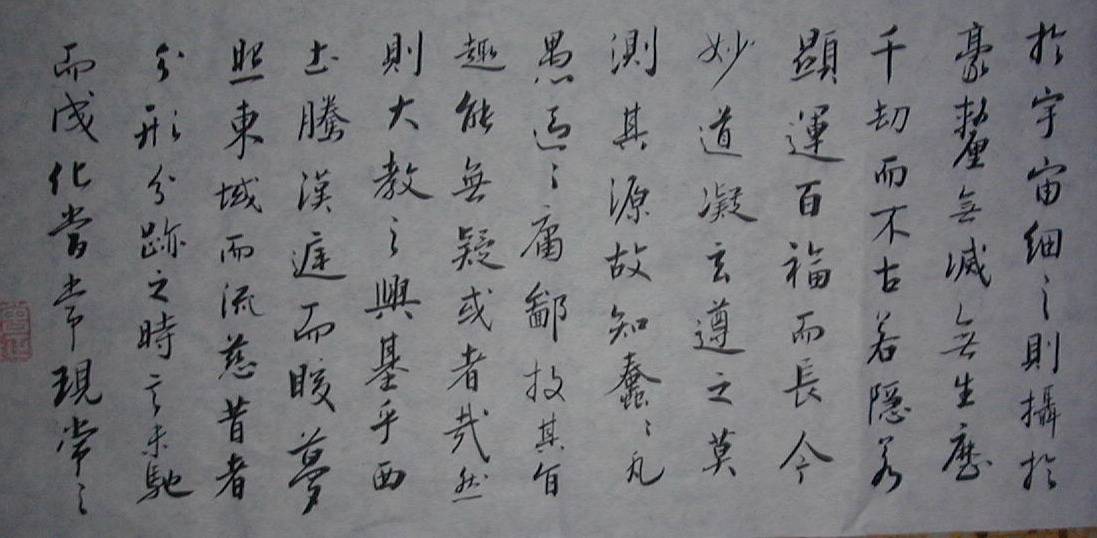 於宇宙細之則攝於
豪釐無滅無生歷
千劫而不古若隱若
顯運百福而長今
妙道凝玄遵之莫
測其源故知蠢〻凡
愚區〻庸鄙投其旨
趣能無疑或者哉然
則大教之興基乎西
土騰漢庭而晈夢
照東域而流慈昔者
分形分跡之時言未馳
而成化當常現常之